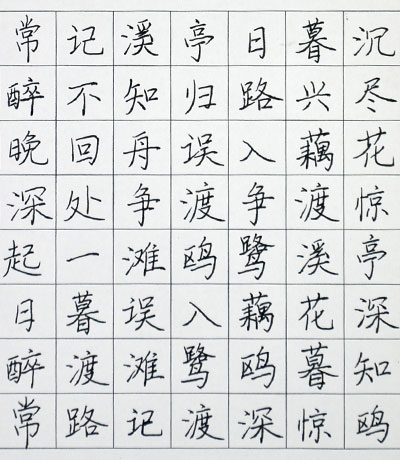 常记溪亭日暮沉
醉不知归路兴尽
晚回舟误入藕花
深处争渡争渡惊
起一滩鸥鹭溪亭
日暮误入藕花深
醉渡滩鹭鸥暮知
常路记渡深惊鸥